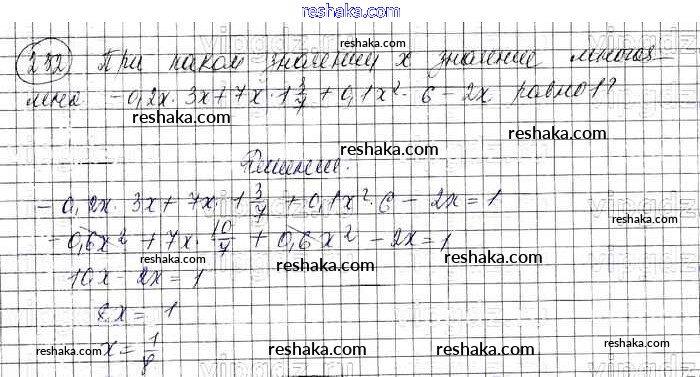 reshaka.com
232 При каком значении x значение многоч-
лена -0,2x · 3x + 7x · 1 3/7 + 0,1x² · 6 - 2x равно 1?
reshaka.com reshaka.com
Решение.
reshaka.com
-0,2x · 3x + 7x · 1 3/7 + 0,1x² · 6 - 2x = 1
reshaka.com reshaka.com
-0,6x² + 7x · 10/7 + 0,6x² - 2x = 1
reshaka.com reshaka.com
10x - 2x = 1
8x = 1
reshaka.com
x = 1/8
reshaka.com reshaka.com reshaka.com
reshaka.com